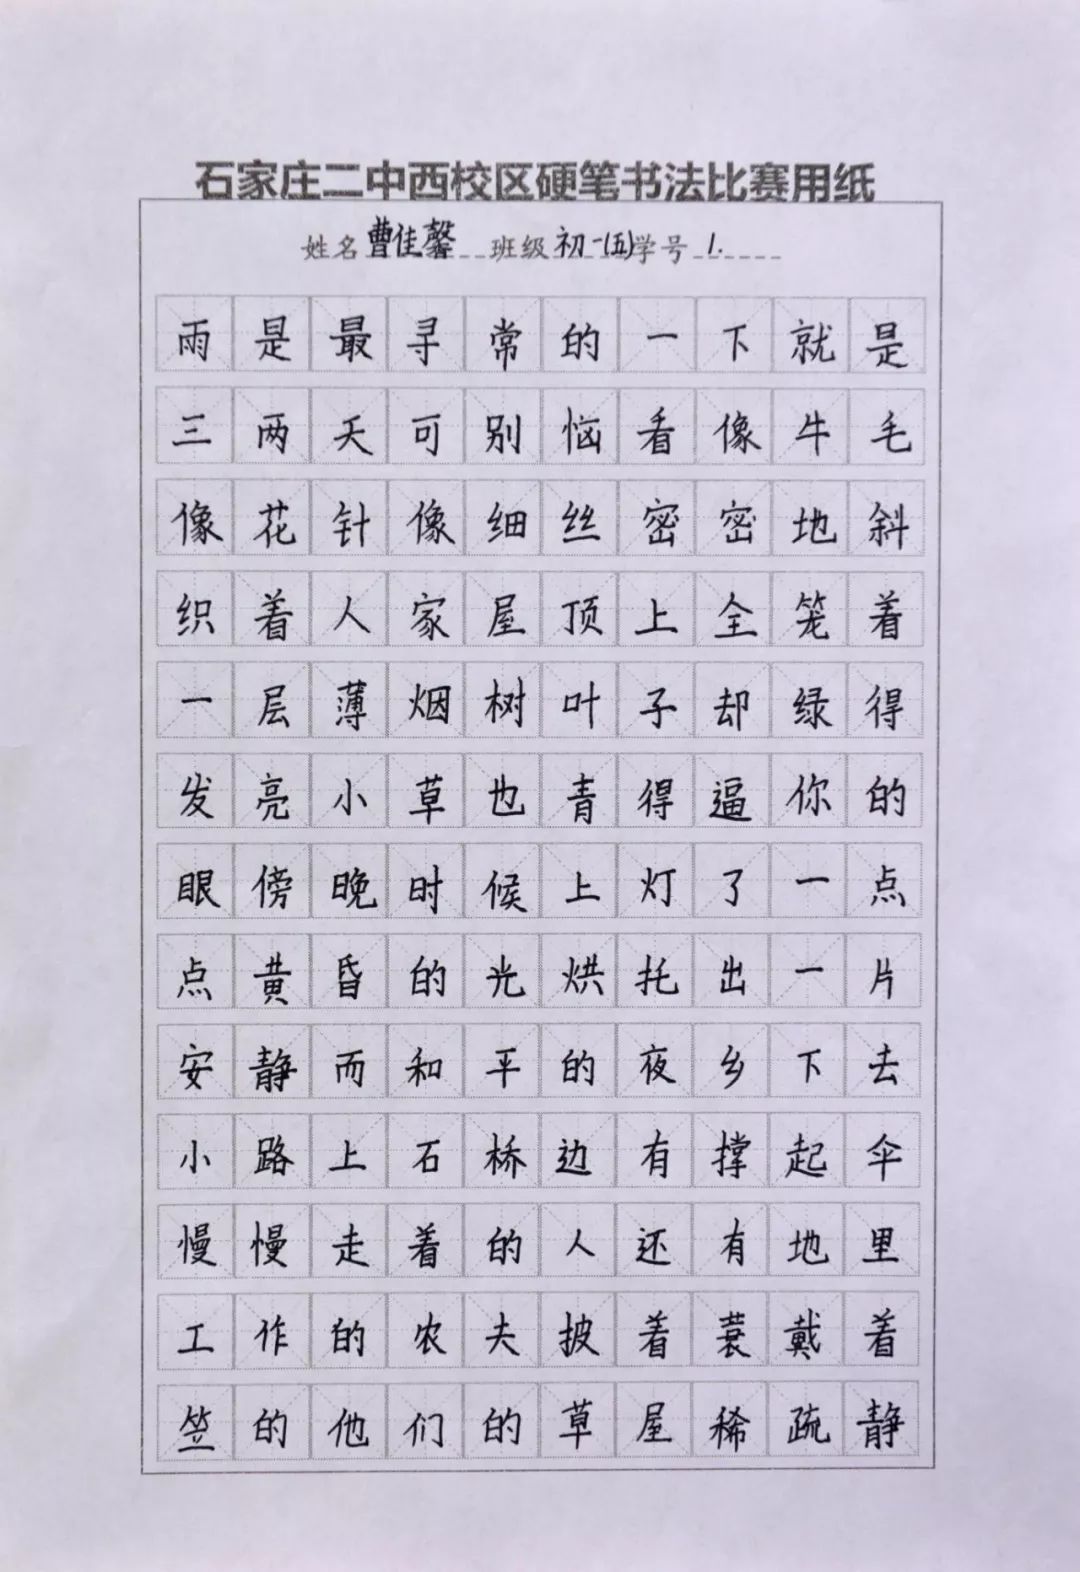 石家庄二中西校区硬笔书法比赛用纸
姓名 曹佳馨 班级 初一(五) 学号 1.
雨是最寻常的一下就是
三两天可别恼看像牛毛
像花针像细丝密密地斜
织着人家屋顶上全笼着
一层薄烟树叶子却绿得
发亮小草也青得逼你的
眼傍晚时候上灯了一点
点黄昏的光烘托出一片
安静而和平的夜乡下去
小路上石桥边有撑起伞
慢慢走着的人还有地里
工作的农夫披着蓑戴着
笠的他们的草屋稀疏静